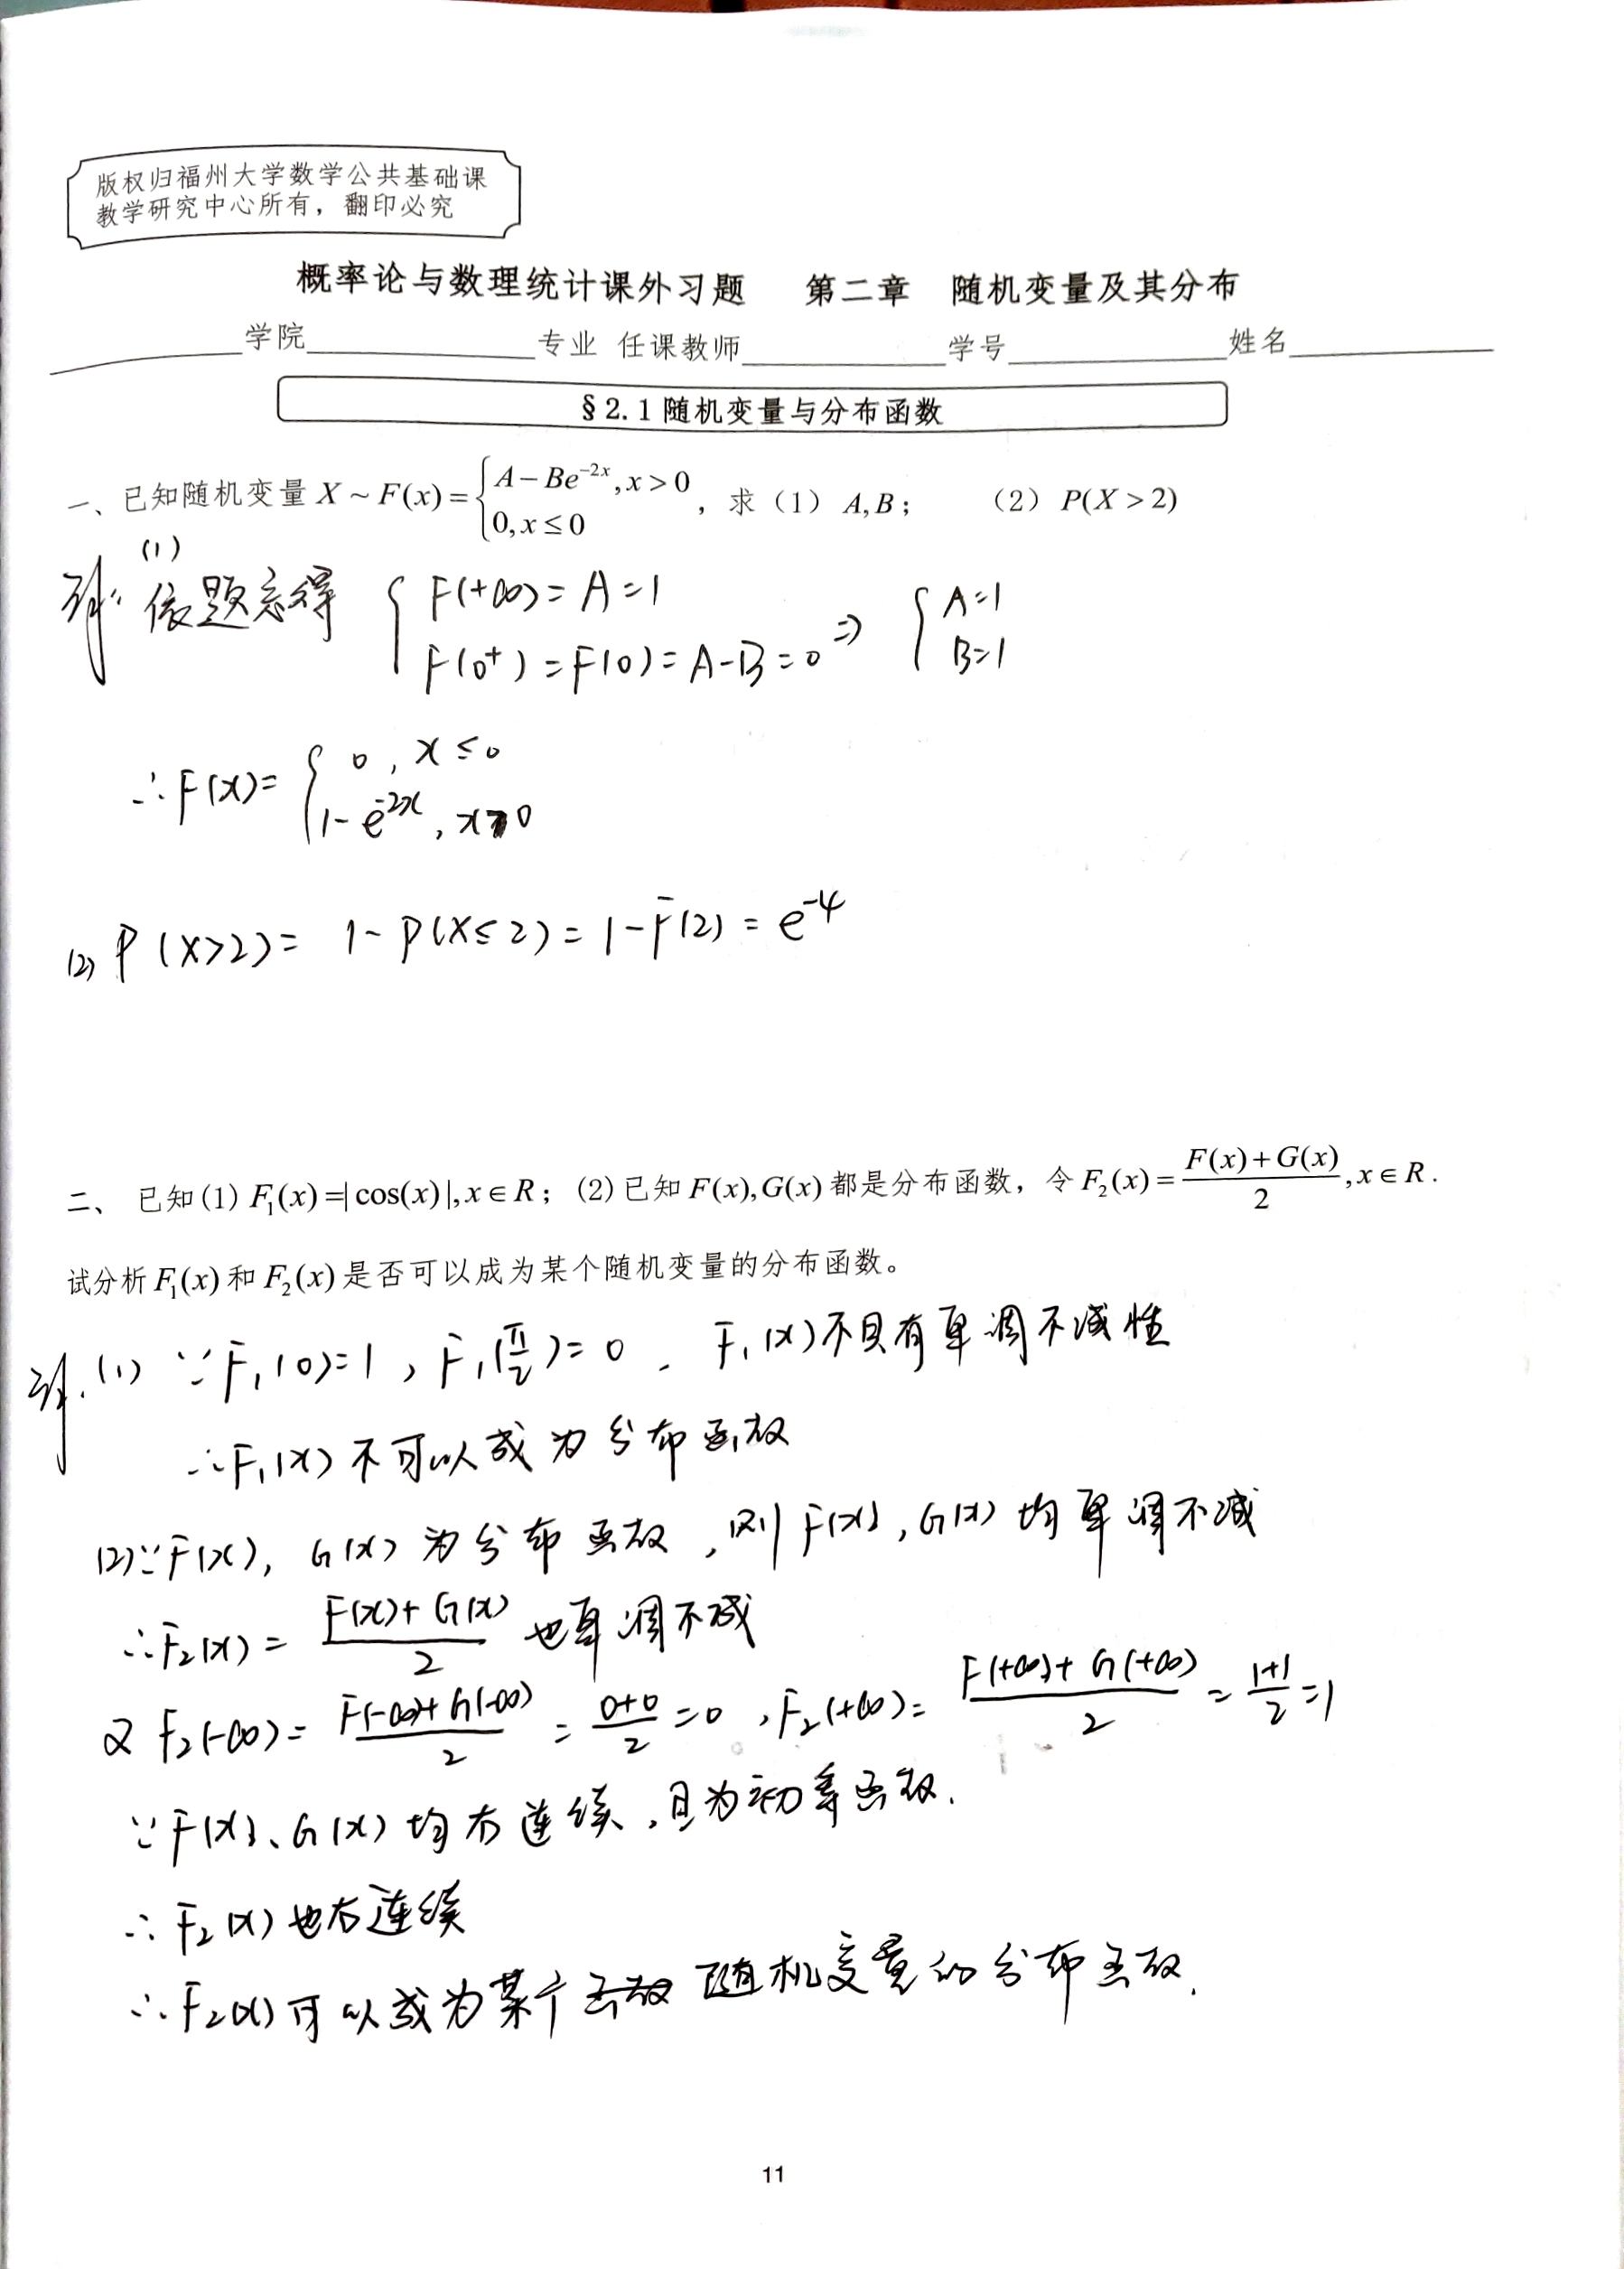 版权归福州大学数学公共基础课
教学研究中心所有，翻印必究
概率论与数理统计课外习题 第二章 随机变量及其分布
学院 专业 任课教师 学号 姓名
§2.1随机变量与分布函数
一、已知随机变量 X ~ F(x) = { A − Be^{-2x}, x > 0 ; 0, x ≤ 0 ，求（1） A, B； （2） P(X > 2)
解: (1) 依题意得 { F(+∞) = A = 1 ; F(0⁺) = F(0) = A-B = 0 ⇒ { A=1 ; B=1
∴ F(x) = { 0, x ≤ 0 ; 1-e^{-2x}, x>0
(2) P(X>2) = 1-P(X≤2) = 1-F(2) = e^{-4}
二、 已知(1) F₁(x) =| cos(x) |, x ∈ R；(2)已知 F(x), G(x) 都是分布函数，令 F₂(x) = (F(x)+G(x))/2, x ∈ R.
试分析 F₁(x) 和 F₂(x) 是否可以成为某个随机变量的分布函数。
解. (1) ∵ F₁(0)=1, F₁(π/2)=0, F₁(x)不具有单调不减性
∴ F₁(x) 不可以成为分布函数
(2)∵F(x), G(x) 为分布函数, 则 F(x), G(x) 均单调不减
∴ F₂(x) = (F(x)+G(x))/2 也单调不减
又 F₂(-∞) = (F(-∞)+G(-∞))/2 = (0+0)/2 = 0, F₂(+∞) = (F(+∞)+G(+∞))/2 = (1+1)/2 = 1
∵ F(x)、G(x) 均右连续, 且为初等函数.
∴ F₂(x) 也右连续
∴ F₂(x) 可以成为某个函数 随机变量的分布函数.
11